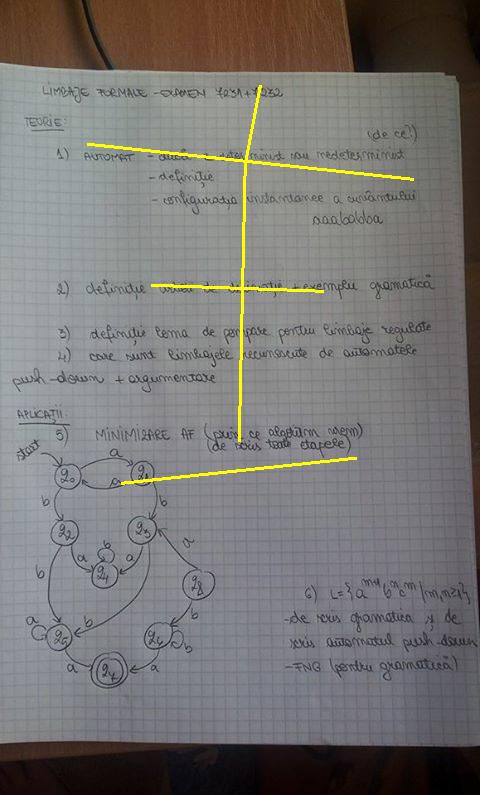 LIMBAJE FORMALE - EXAMEN 1231+1232
TEORIE:
(de ce?)
1) AUTOMAT - determinist sau nedeterminist
- definiție
- configurația instantanee a cuvântului
aaababba
2) definiție + exemplu gramatică
3) definiție lema de pompare pentru limbaje regulate
4) care sunt limbajele recunoscute de automatele
push-down + argumentare
APLICAȚII:
5) MINIMIZARE AF (prin ce algoritm vrem)
(de scris toate etapele)
start
a
q0 q1
a
b b
q2 q3
b
a a a
q4 q8
b b b
a
q5 q6 b
a a
q7
6) L={a b c | m,n≥1},
- de scris gramatica și de
scris automatul push-down
- FNG (pentru gramatică)